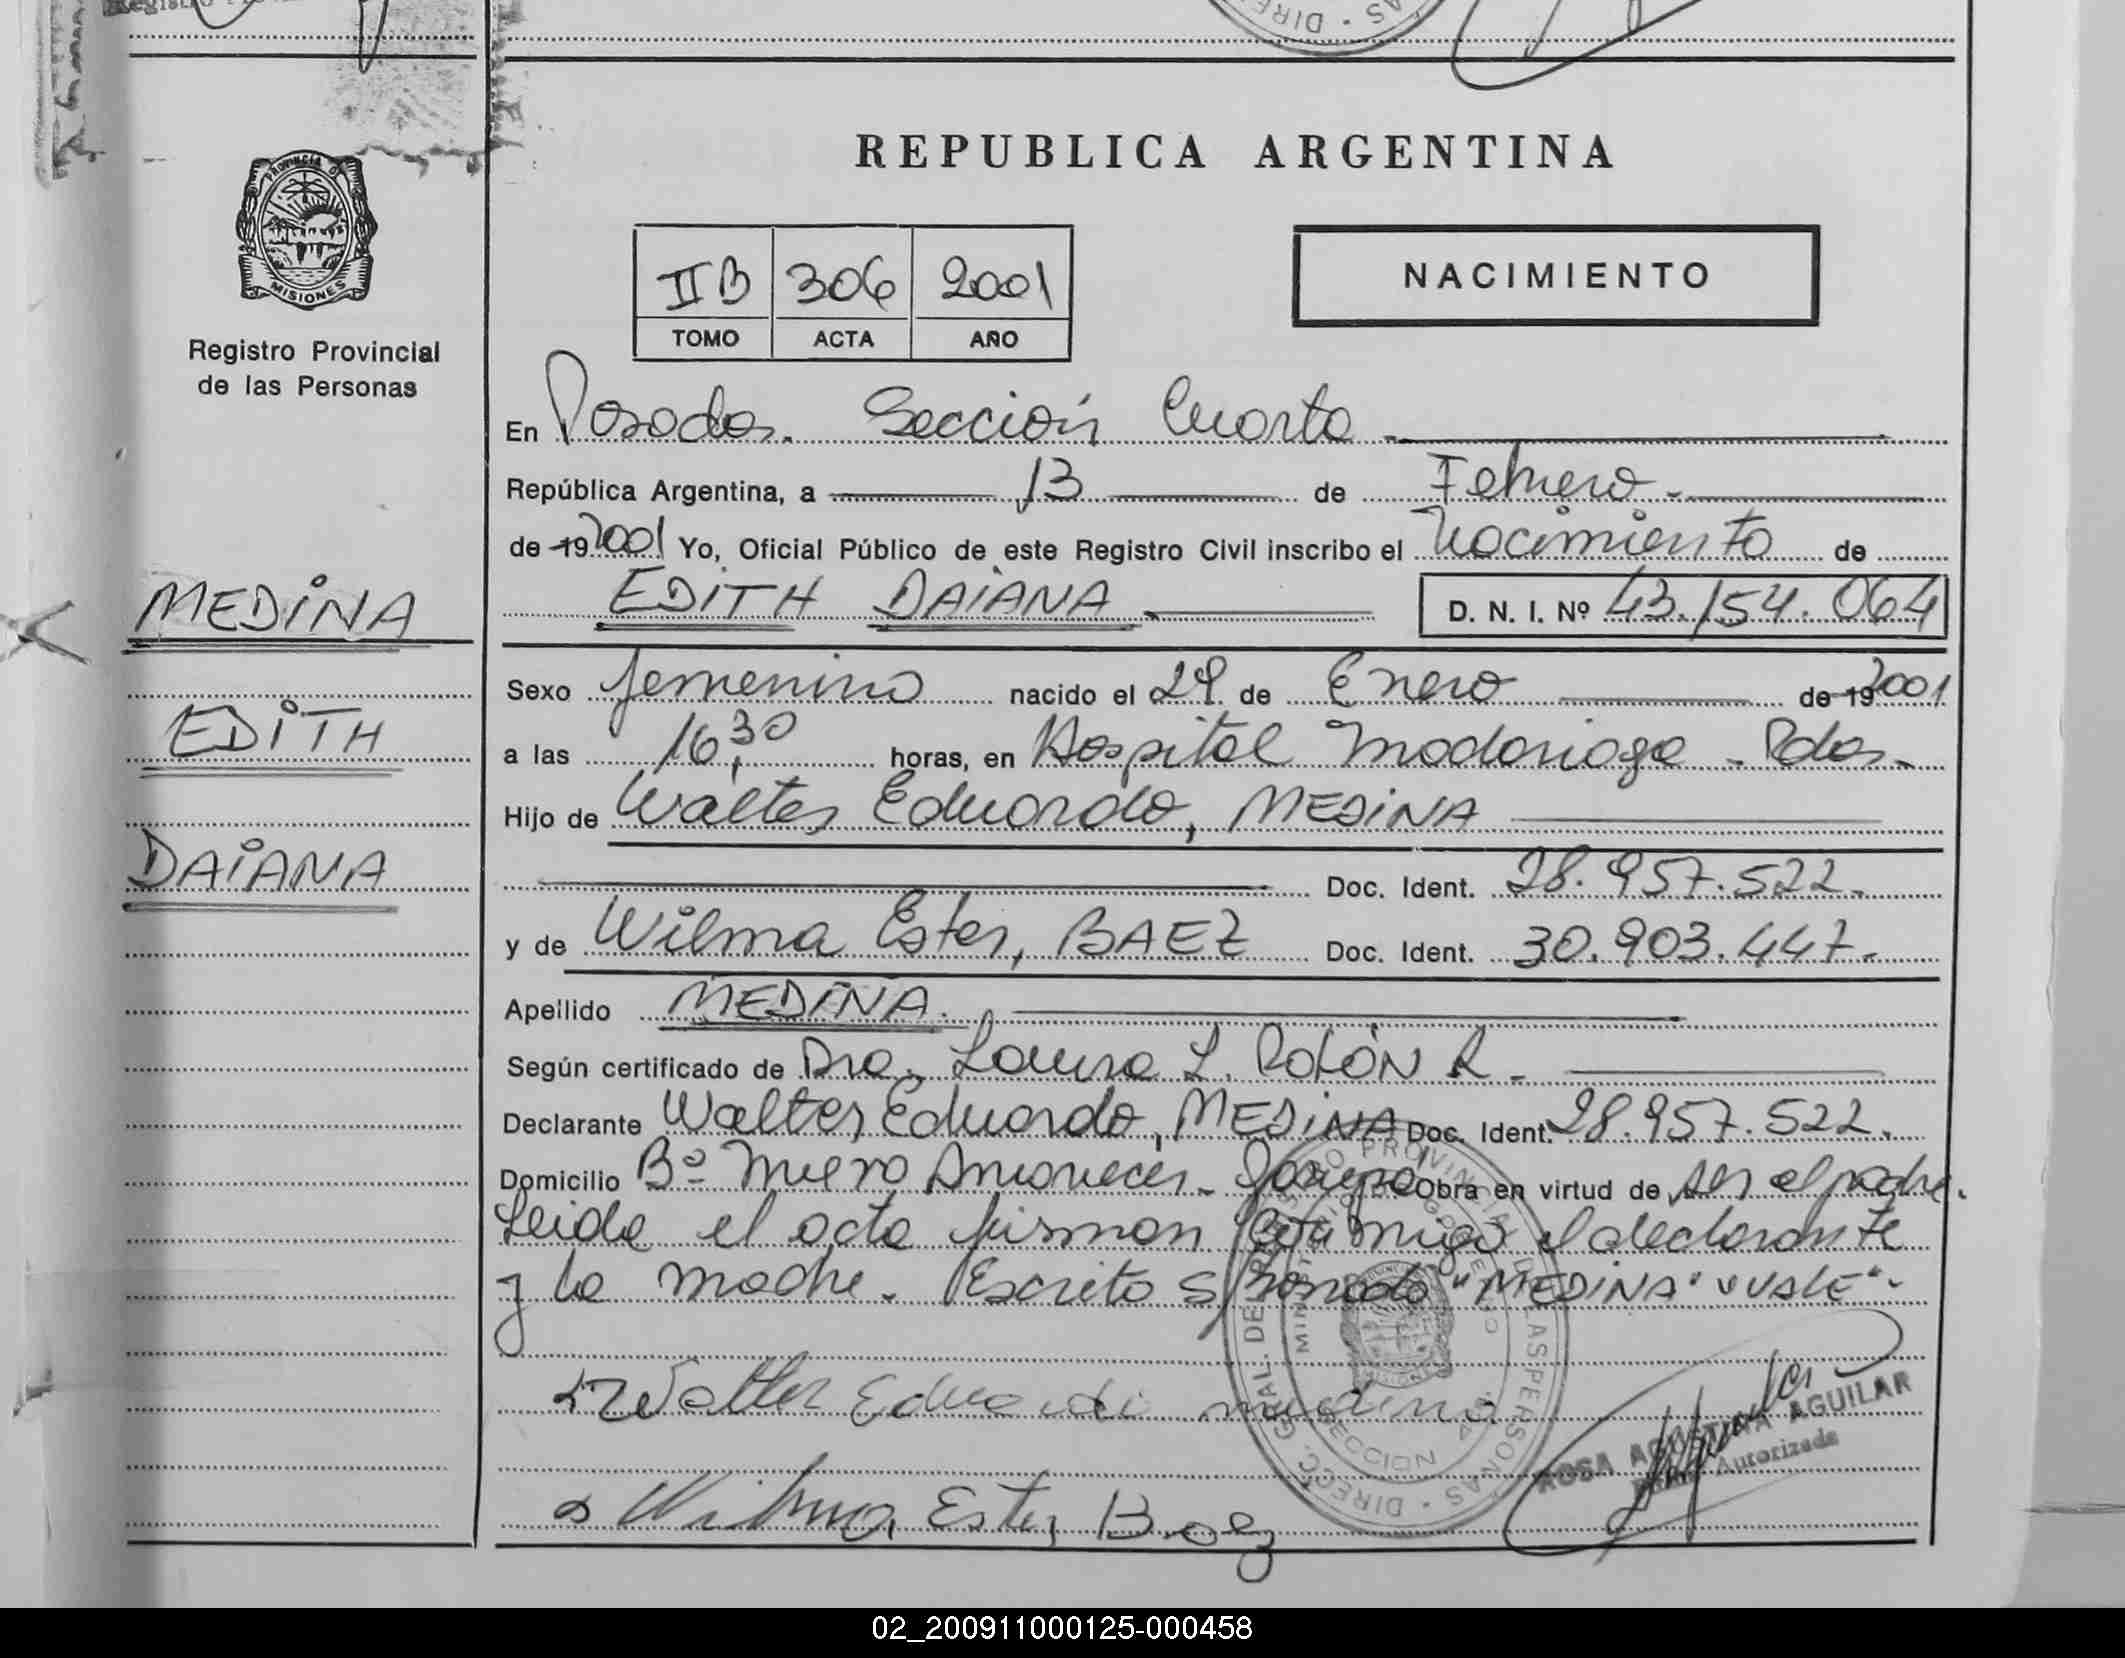 PROVINCIA D
MISIONES
Registro Provincial
de las Personas
MEDINA
EDITH
DAIANA
REPUBLICA ARGENTINA
II B 306 2001
TOMO ACTA AÑO
NACIMIENTO
En Posadas. Sección Cuarta
República Argentina, a 13 de Febrero
de 19 2001 Yo, Oficial Público de este Registro Civil inscribo el Nacimiento de
EDITH DAIANA D. N. I. Nº 43.154.064
Sexo femenino nacido el 29 de Enero de 19 2001
a las 16,30 horas, en Hospital Madariaga - Pdas.
Hijo de Walter Eduardo, MEDINA
Doc. Ident. 28.957.522.
y de Wilma Ester, BAEZ Doc. Ident. 30.903.447.
Apellido MEDINA.
Según certificado de Dra. Laura L. Rolón R.
Declarante Walter Eduardo, MEDINA Doc. Ident. 28.957.522.
Domicilio Bº Nuevo Amanecer - Garupá Obra en virtud de ser el padre.
Leida el acta firman conmigo el declarante
y la madre. Escrito s/ borrado "MEDINA" "VALE".
Walter Eduardo medina
Wilma Ester Baez
DIRECC. GRAL. DE REGISTRO PROVINCIAL DE LAS PERSONAS
MINISTERIO DE GOBIERNO
SECCION 4a.
MISIONES
ROSA AGUSTINA AGUILAR
Autorizada
02_200911000125-000458